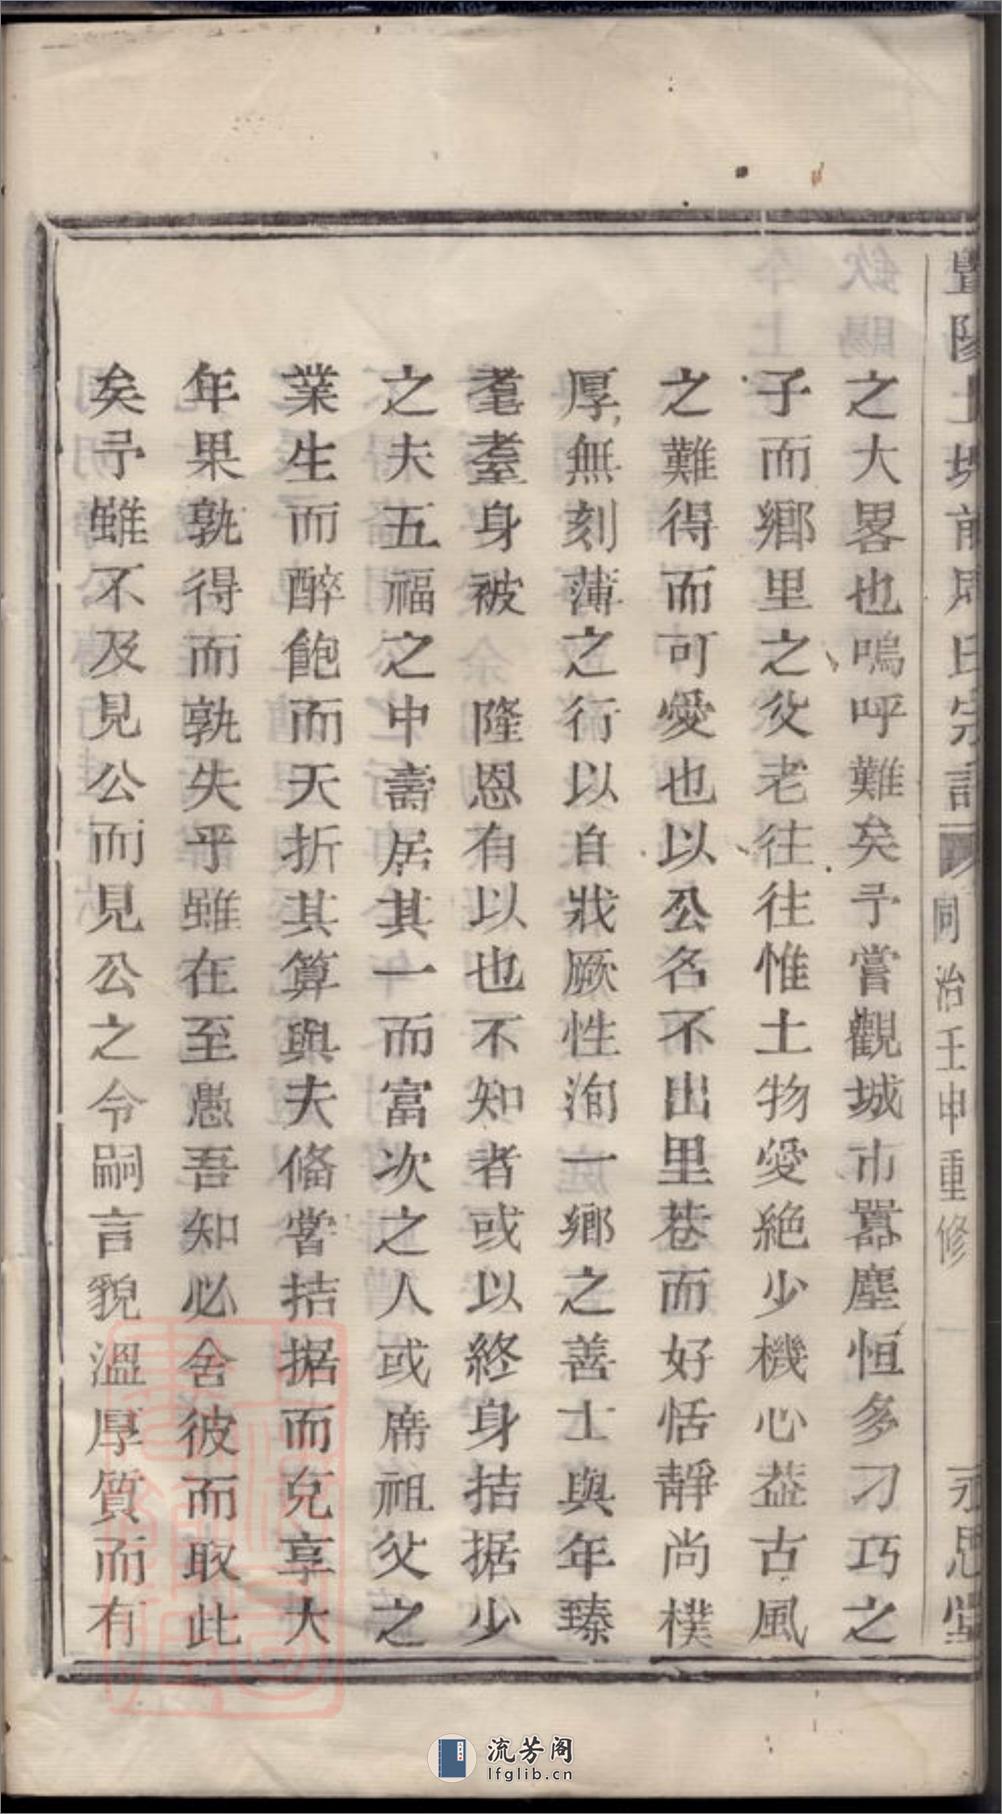 暨陽上城前周氏宗譜 同治壬申重修 一 永思堂
之大畧也嗚呼難矣予嘗觀城市囂塵恒多刁巧之
子而鄉里之父老往往惟土物愛絶少機心益古風
之難得而可愛也以公名不出里巷而好恬靜尚樸
厚無刻薄之行以自戕厥性洵一鄉之善士與年臻
耄耋身被　隆恩有以也不知者或以終身拮据少
之夫五福之中壽居其一而富次之人或席祖父之
業生而醉飽而天折其算與夫俻嘗拮据而克享大
年果孰得而孰失乎雖在至愚吾知必舍彼而取此
矣予雖不及見公而見公之令嗣言貌溫厚質而有
流芳阁
lfglib.cn